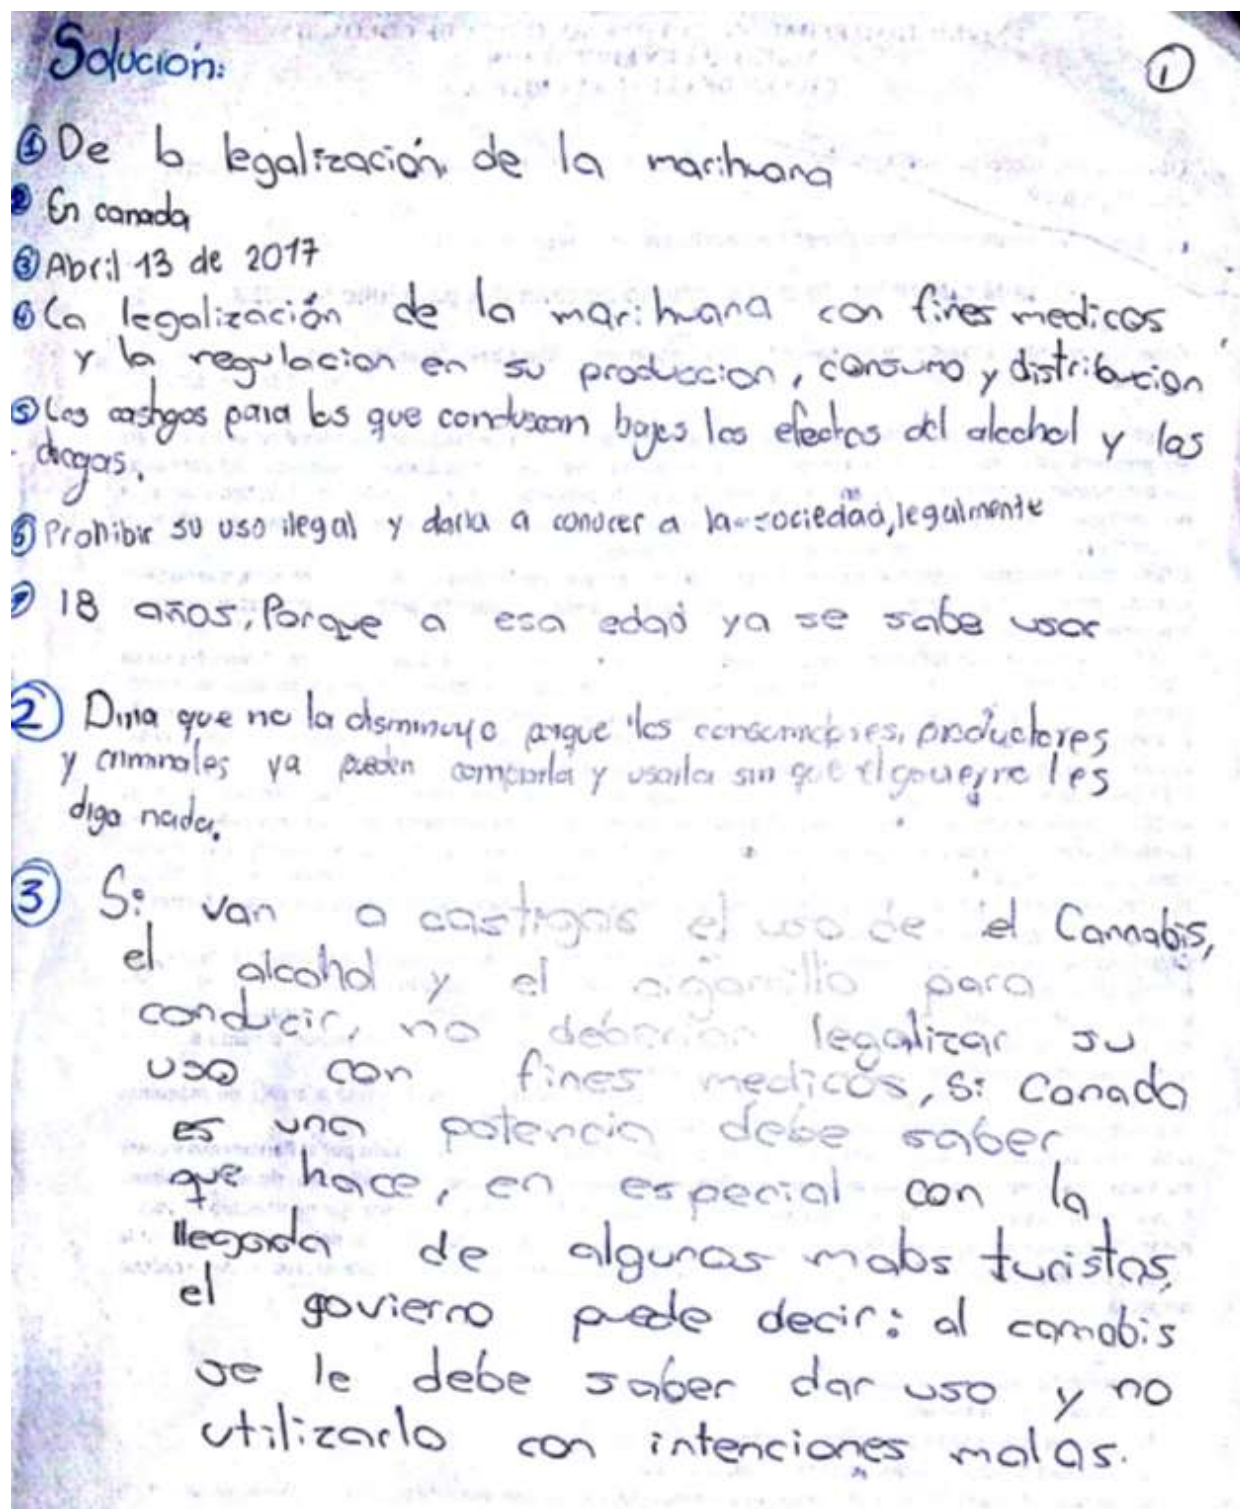 Solución:
1
① De la legalización de la marihuana
② En canada
③ Abril 13 de 2017
④ La legalización de la marihuana con fines medicos
y la regulacion en su produccion, consumo y distribucion
⑤ Los castigos para los que conduscan bajos los efectos del alcohol y las
drogas.
⑥ Prohibir su uso ilegal y darla a conocer a la sociedad, legalmente
⑦ 18 años, Porque a esa edad ya se sabe usar
② Diria que no la disminuyo porque los consumidores, productores
y criminales ya pueden comprarla y usarla sin que el les
diga nada.
③ Si van a castigar el uso de el Cannabis,
el alcohol y el cigarrillo para
conducir, no deberian legalizar su
uso con fines medicos, si Canada
es una potencia debe saber
que hace, en especial con la
llegada de algunos malos turistas,
el govierno puede decir: al cannabis
se le debe saber dar uso y no
utilizarlo con intenciones malas.